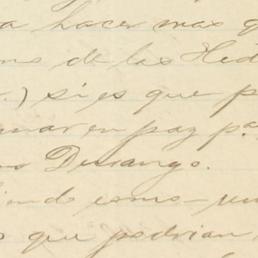 a hacer mas q
de las Hed
.) si es que p
en paz pa
Durango.
como - un
que podrian